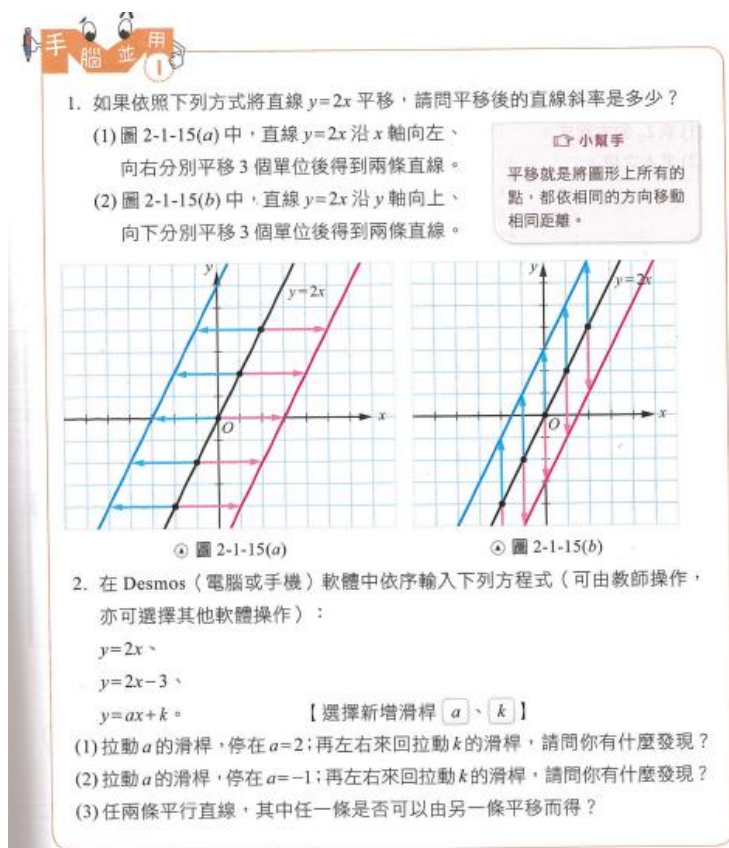 手腦並用
1
1. 如果依照下列方式將直線 y=2x 平移，請問平移後的直線斜率是多少？
(1) 圖 2-1-15(a) 中，直線 y=2x 沿 x 軸向左、
向右分別平移 3 個單位後得到兩條直線。
(2) 圖 2-1-15(b) 中，直線 y=2x 沿 y 軸向上、
向下分別平移 3 個單位後得到兩條直線。
小幫手
平移就是將圖形上所有的
點，都依相同的方向移動
相同距離。
y
y=2x
O
x
圖 2-1-15(a)
y
y=2x
O
x
圖 2-1-15(b)
2. 在 Desmos（電腦或手機）軟體中依序輸入下列方程式（可由教師操作，
亦可選擇其他軟體操作）：
y=2x、
y=2x-3、
y=ax+k。 【選擇新增滑桿 a、k】
(1) 拉動 a 的滑桿，停在 a=2；再左右來回拉動 k 的滑桿，請問你有什麼發現？
(2) 拉動 a 的滑桿，停在 a=-1；再左右來回拉動 k 的滑桿，請問你有什麼發現？
(3) 任兩條平行直線，其中任一條是否可以由另一條平移而得？